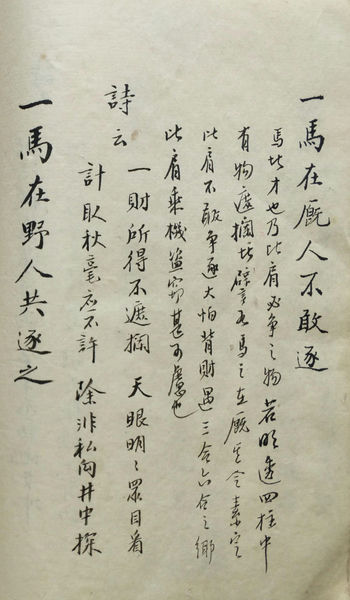 一馬在厩人不敢逐
馬比才也乃比肩必爭之物 若明透四柱中
有物遮攔 馬之在厩 素定
比肩不敢爭逐大怕背財遇三合六合之鄉
比肩乘機盜窃甚可慮也
詩云
一財所得不遮攔 天眼明〻眾目看
計取秋毫應不許 除非私向井中探
一馬在野人共逐之